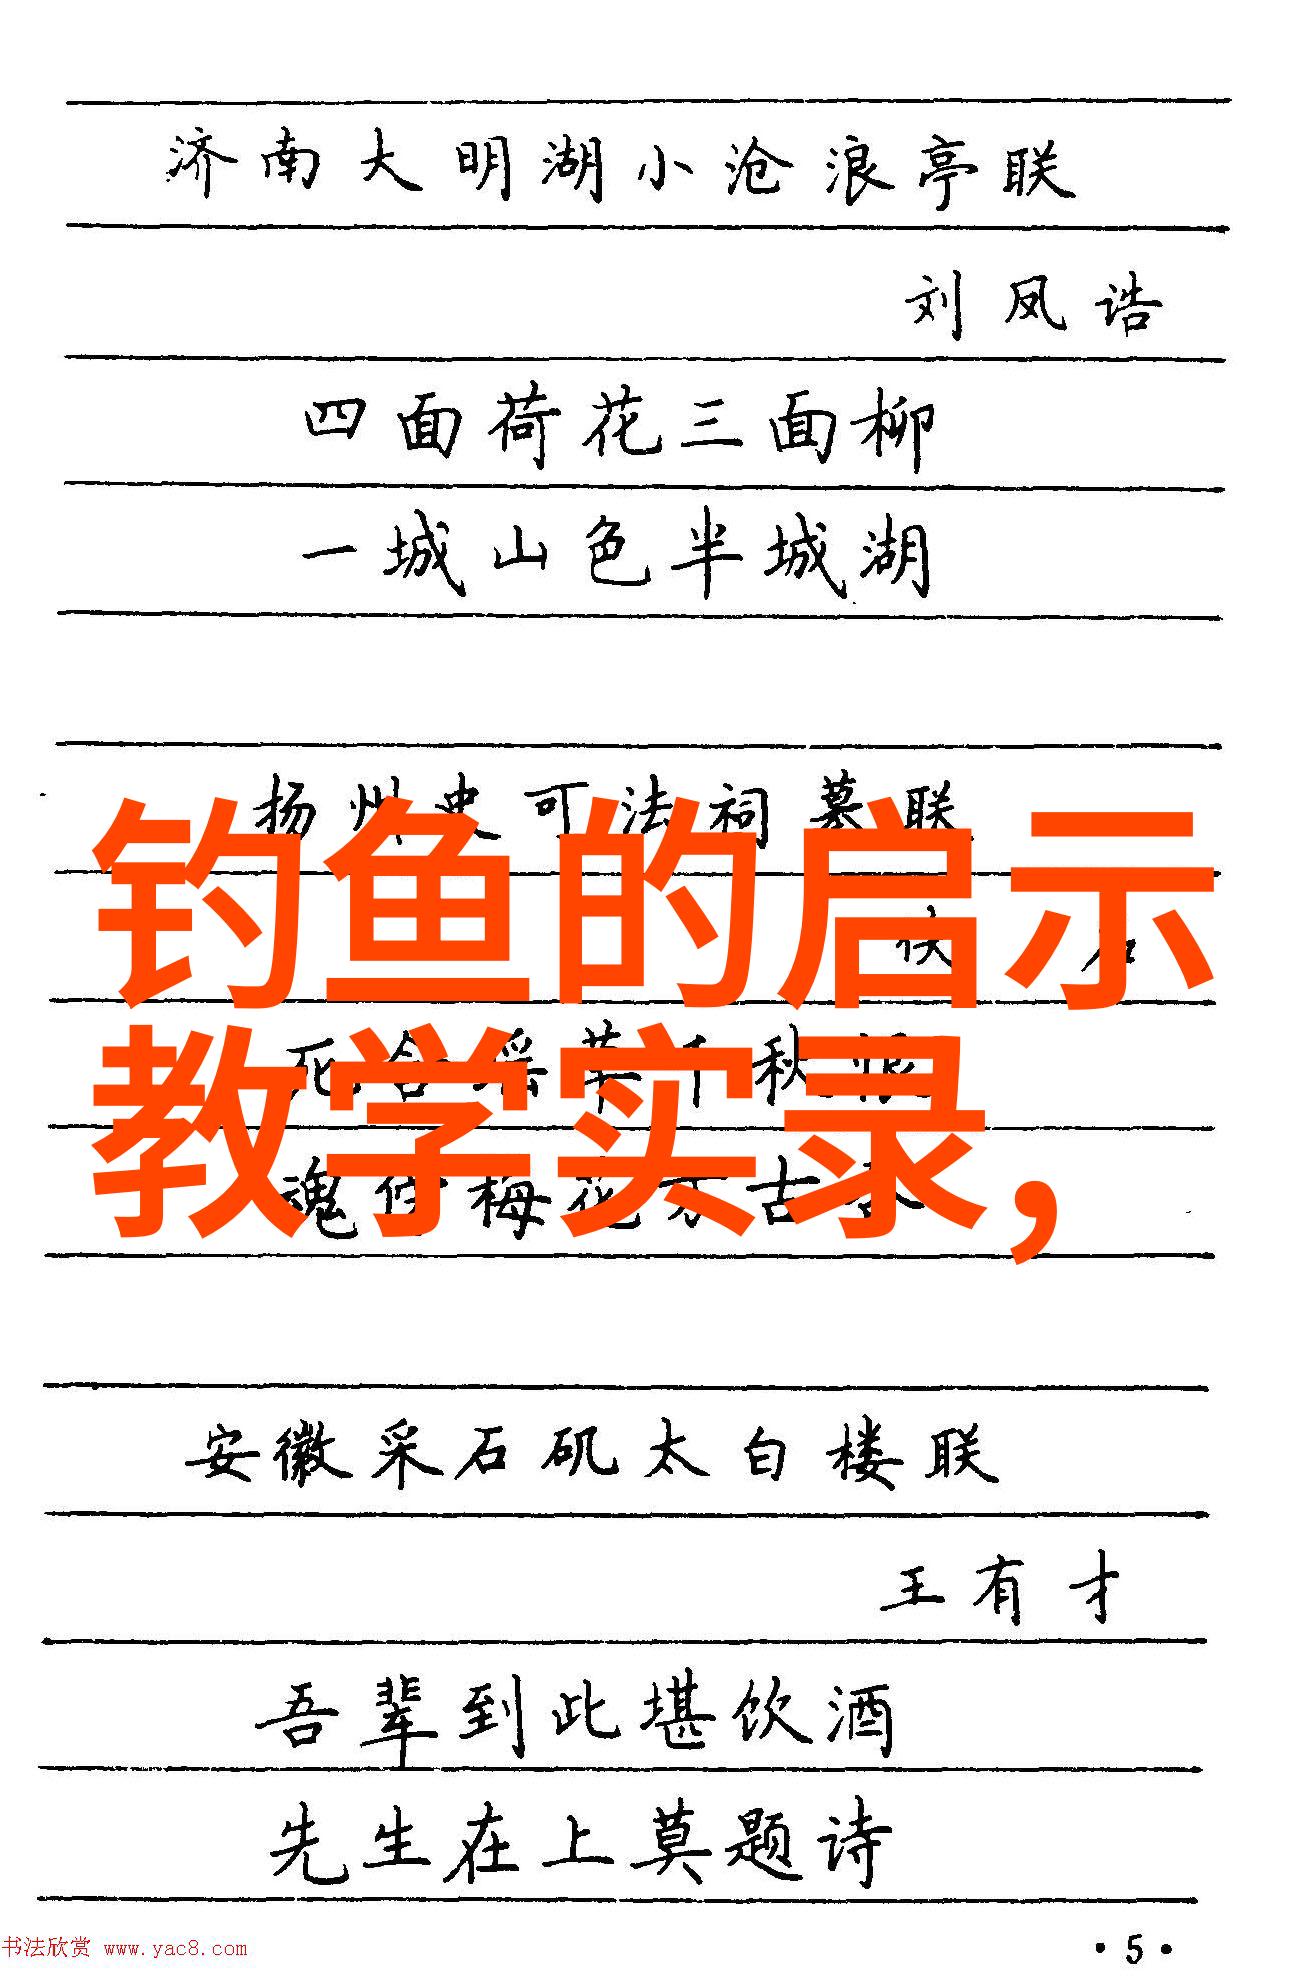 济南大明湖小沧浪亭联
刘凤诰
四面荷花三面柳
一城山色半城湖
扬州史可法祠墓联
钓鱼的启示
教学实录，
秋恨
魂 梅花 古
安徽采石矶太白楼联
王有才
吾辈到此堪饮酒
先生在上莫题诗
书法欣赏 www.yac8.com
·5·